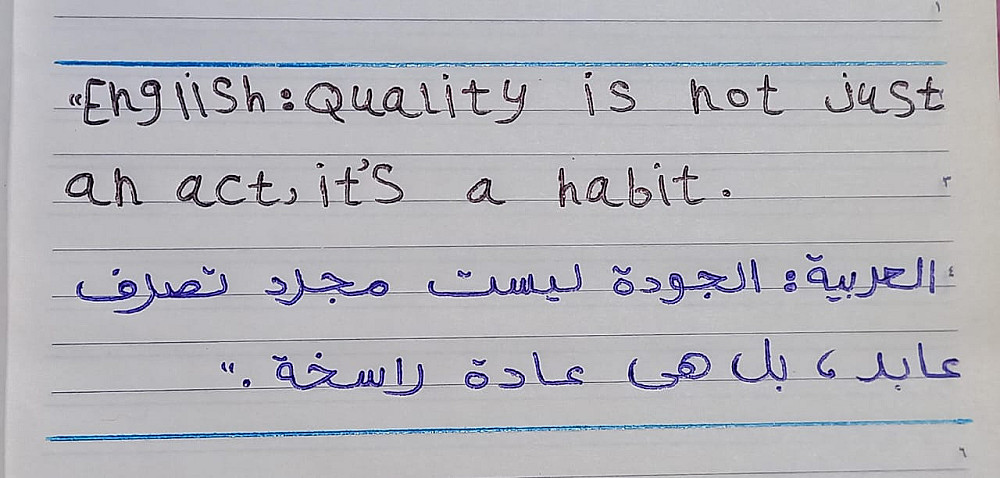 "English: Quality is not just
an act, it's a habit.
العربية: الجودة ليست مجرد تصرف
عابد، بل هى عادة راسخة."